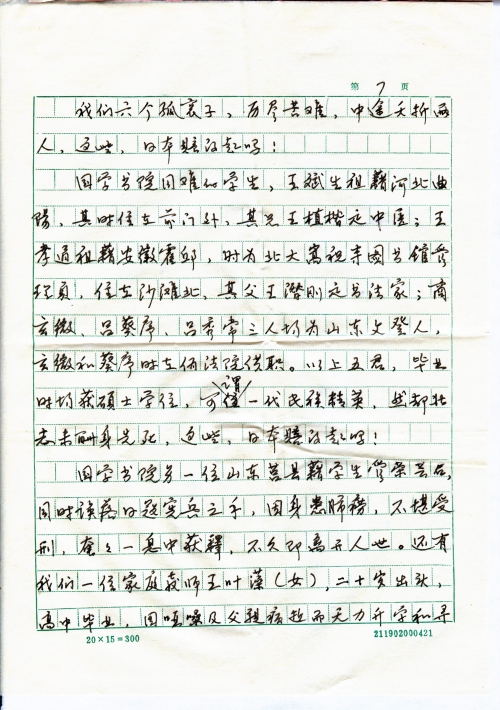 第 7 页
我们六个孤哀子，历尽苦难，中途夭折两
人，这些，日本赔的起吗！
国学书院同难的学生，王斌生祖籍河北曲
阳，其时住在前门外，其兄王植楷是中医；王
孝通祖籍安徽霍邱，时为北大嵩祝寺图书馆管
理员，住在沙滩北，其父王潜刚是书法家；商
玄微、吕葵序、吕秀常三人均为山东文登人，
玄微和葵序时在俩法院供职。以上五君，毕业
时均获硕士学位，可谓一代民族精英，然却壮
志未酬身先死，这些，日本赔的起吗！
国学书院另一位山东莒县籍学生管荣芸，
同时误落日寇宪兵之手，因身患肺痨，不堪受
刑，奄奄一息中获释，不久即离开人世。还有
我们一位家庭教师王叶藻（女），二十岁出头，
高中毕业，因嗔嗓及父祖病故而无力升学和寻
20×15=300
211902000421